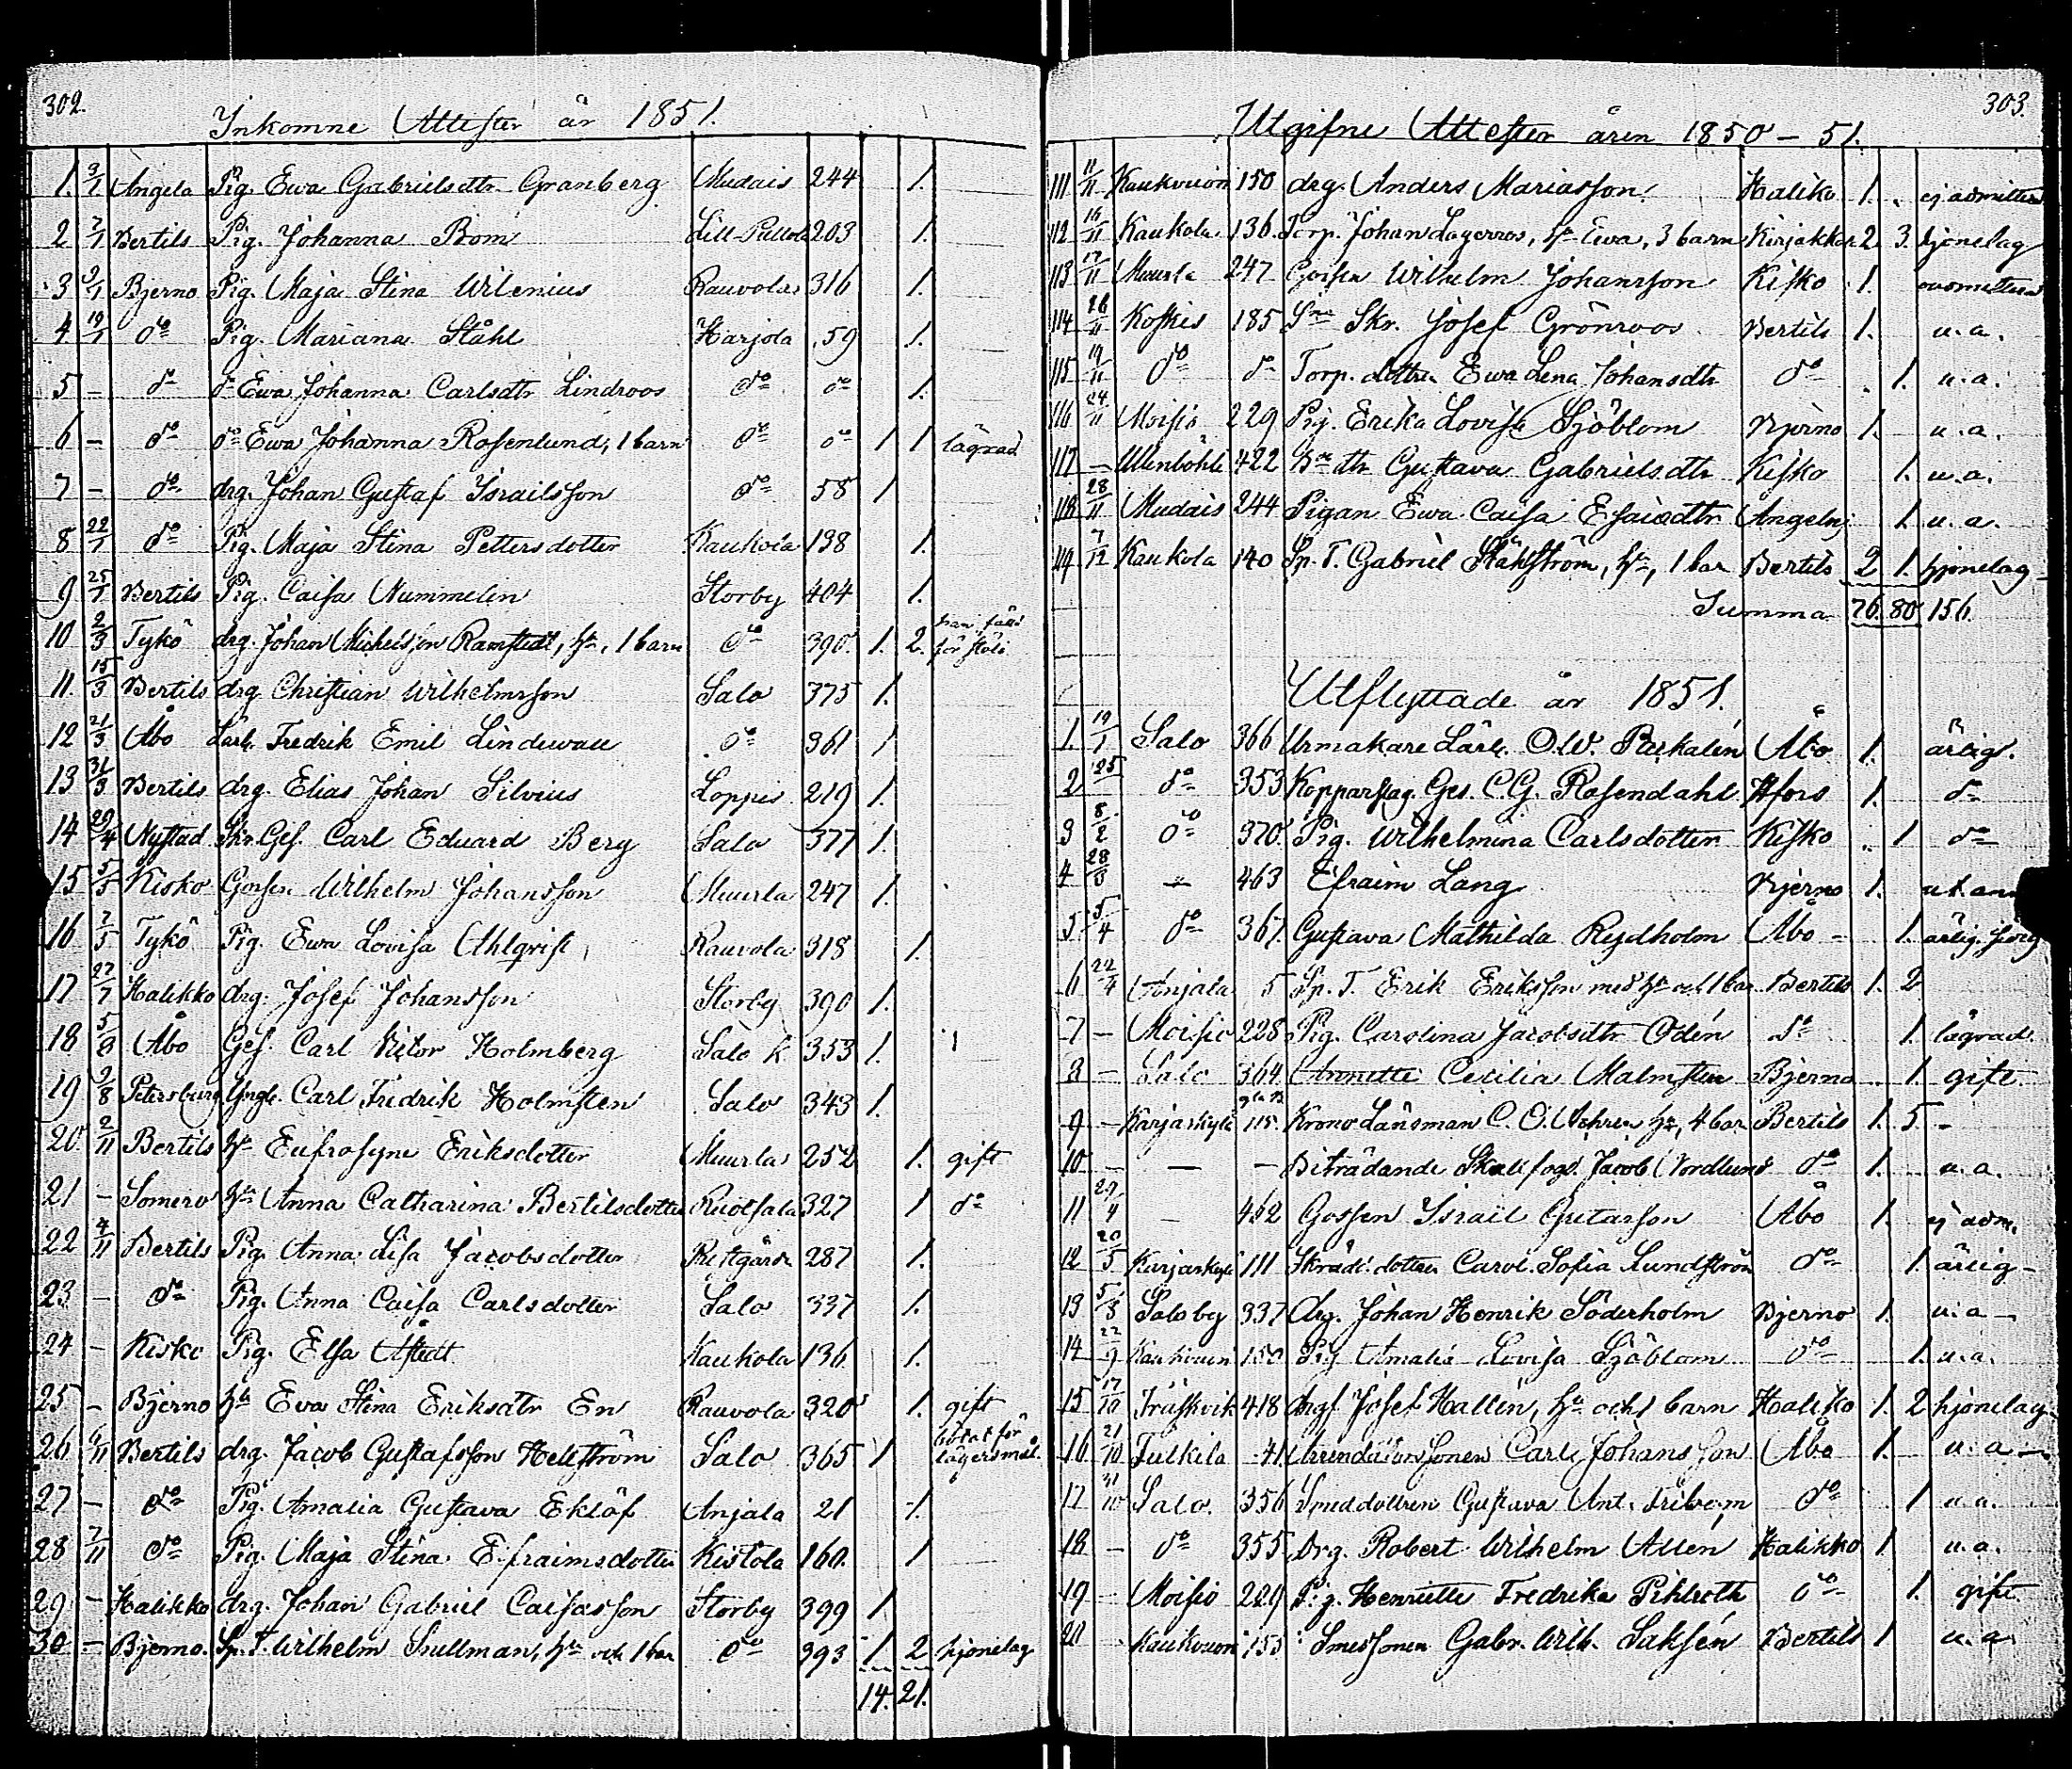 302.
Inkomne Attester år 1851.
1. 3/1 Angela Pig. Ewa Gabrielsdtr Granberg Mudais 244 1.
2 7/1 Bertils Pig. Johanna Bom Lill-Pullola 203 1.
3 9/1 Bjerno Pig. Maja Stina Wilenius Rauvola 316 1.
4 19/1 do Pig. Mariana Ståhl Karjola 59 1.
5 - do do Ewa Johanna Carlsdtr Lindroos do do 1.
6 - do do Ewa Johanna Rosenlund, 1 barn do do 1 1 lägrad
7 - do drg. Johan Gustaf Israilsson do 58 1
8 22/1 do Pig. Maja Stina Pettersdotter 198 1.
9 25/1 Bertils Pig. Caisa Nummelin Storby 404 1.
10 2/3 Tykö drg. Johan Michelsson Ramstedt, hu, 1 barn do 390. 1. 2. för stöld
11. 15/3 Bertils drg. Christian Wilhelmsson Salo 375 1.
12 21/3 Åbo Lärl. Fredrik Emil Lindewall do 361 1
13 31/3 Bertils drg. Elias Johan Silvius Loppis 219 1.
14 29/4 Nystad Skr. Ges. Carl Eduard Berg Salo 377 1.
15 5/5 Kisko Gossen Wilhelm Johansson Muurla 247 1.
16 7/5 Tykö Pig. Ewa Lovisa Ahlqvist Rauvola 318 1.
17 27/7 Halikko drg. Josef Johansson Storby 390 1.
18 5/8 Åbo Ges. Carl Victor Holmberg Salo k 353 1.
19 9/8 Petersburg Yngl. Carl Fridrik Holmsten Salo 343 1.
20. 2/11 Bertils hu Eufrosyne Eriksdotter Muurla 252 1. gift
21 - Somero hu Anna Catharina Bertilsdotter Ruotsala 327 1 do
22 4/11 Bertils Pig. Anna Lisa Jacobsdotter Prestgärde 287 1.
23 - do Pig. Anna Caisa Carlsdotter Salo 337 1.
24 - Kisko Pig. Elsa Alstedt Kaukola 136 1.
25 - Bjerno hu Eva Stina Eriksdtr En Rauvola 320 1. gift
26 6/11 Bertils drg. Jacob Gustafsson Hellström Salo 365 1 bötat för lägersmål.
27 - do Pig. Amalia Gustava Eklöf Anjala 21 1.
28 7/11 do Pig. Maja Stina Efraimsdotter Kistola 160. 1
29 - Halikko drg. Johan Gabriel Caisasson Storby 399 1
30 - Bjerno. Sp. T. Wilhelm Snullman, hu och 1 bar do 393 1. 2 hjonelag
14. 21.
303.
Utgifne Attester åren 1850-51.
111 11/11 Kaukvuori 150 drg. Anders Mariasson Haliko 1. ej admitterad
112 16/11 Kaukola 136. Torp. Johan Lagerroos, hu Ewa, 3 barn Kirjakkal 2 3. hjonelag
113 17/11 Muurla 247 Gossen Wilhelm Johansson Kisko 1.
114 18/11 Koskis 185 Skr. Josef Grönroos Bertils 1. u.a.
115 19/11 do do Torp. dottren Ewa Lena Johansdtr do 1. u.a.
116 24/11 Moisio 229 Pig. Erika Lovisa Sjöblom Bjerno 1. u.a.
117 - Ullenböhle 422 Bde dtr Gustava Gabrielsdtr Kisko 1. u.a.
118 28/11 Mudais 244 Pigan Ewa Caisa Esaiædtr Angelnj 1. u.a.
119 7/12 Kaukola 140 Sp. T. Gabriel Ståhlström, hu, 1 bar Bertils 2 1. hjonelag
Summa 76. 80 156.
Utflyttade år 1851.
1. 19/1 Salo 366 Urmakare Lärl. O.W. Pukalén Åbo 1. ärligt.
2 25 do 353 Kopparslag. Ges. C.G. Rosendahl Hfors 1. do
3 8/2 do 370. Pig. Wilhelmina Carlsdotter Kisko 1 do
4 28/3 463 Efraim Lang Bjerno 1. ut. an
5 5/4 do 367. Gustava Mathilda Rydholm Åbo 1. ärlig
6 22/4 Anjala 5 Sp. T. Erik Eriksson med hu och 1 bar Bertils 1. 2
7 - Moisio 228 Pig. Carolina Jacobsdtr Odén do 1. lägrad.
8 - Salo 364 Annette Cecilia Malmsten Bjerno 1. gift
9 - Karjaskylä 115. Krono Länsman C.O. hu, 4 bar Bertils 1. 5. -
10 - - - Biträdande Skallfogd. Jacob Nordlund do 1. u.a.
11 29/4 - 462 Gossen Israil Gustafsson Åbo 1. ej adm.
12 20/5 Karjaskylä 111 Skräd. dottren Carol. Sofia Lundström do 1. ärlig -
13 5/8 Salo by 337 Drg. Johan Henrik Söderholm Bjerno 1. u.a -
14 22/9 Kaukvuori 150 Pig Amalia Lovisa Sjöblom do 1. u.a.
15 17/10 Träskvik 418 drg. Josef Hallén, hu och 1 barn Halikko 1. 2 hjonelag
16 21/10 41 Arendatorssonen Carl Johansson Åbo 1. u.a -
17 31/10 Salo. 356 Smeddottren Gustava Ant. do 1 u.a.
18 - do 355 Drg. Robert Wilhelm Allén Halikko 1 u.a.
19 - Moisio 229 Pig. Henriette Fredrika Pihlroth do 1. gift
20 Kaukvuori 155 Smedssonen Gabr. Wilh. Saksén Bertils 1 u.a